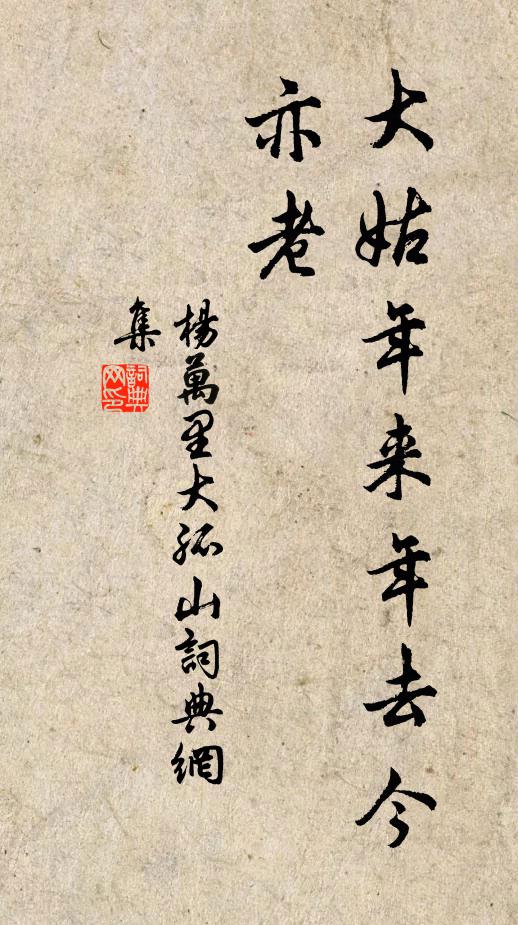 大姑年来年去今
亦老
楊萬里大孤山詞典網
集
詞典
网印